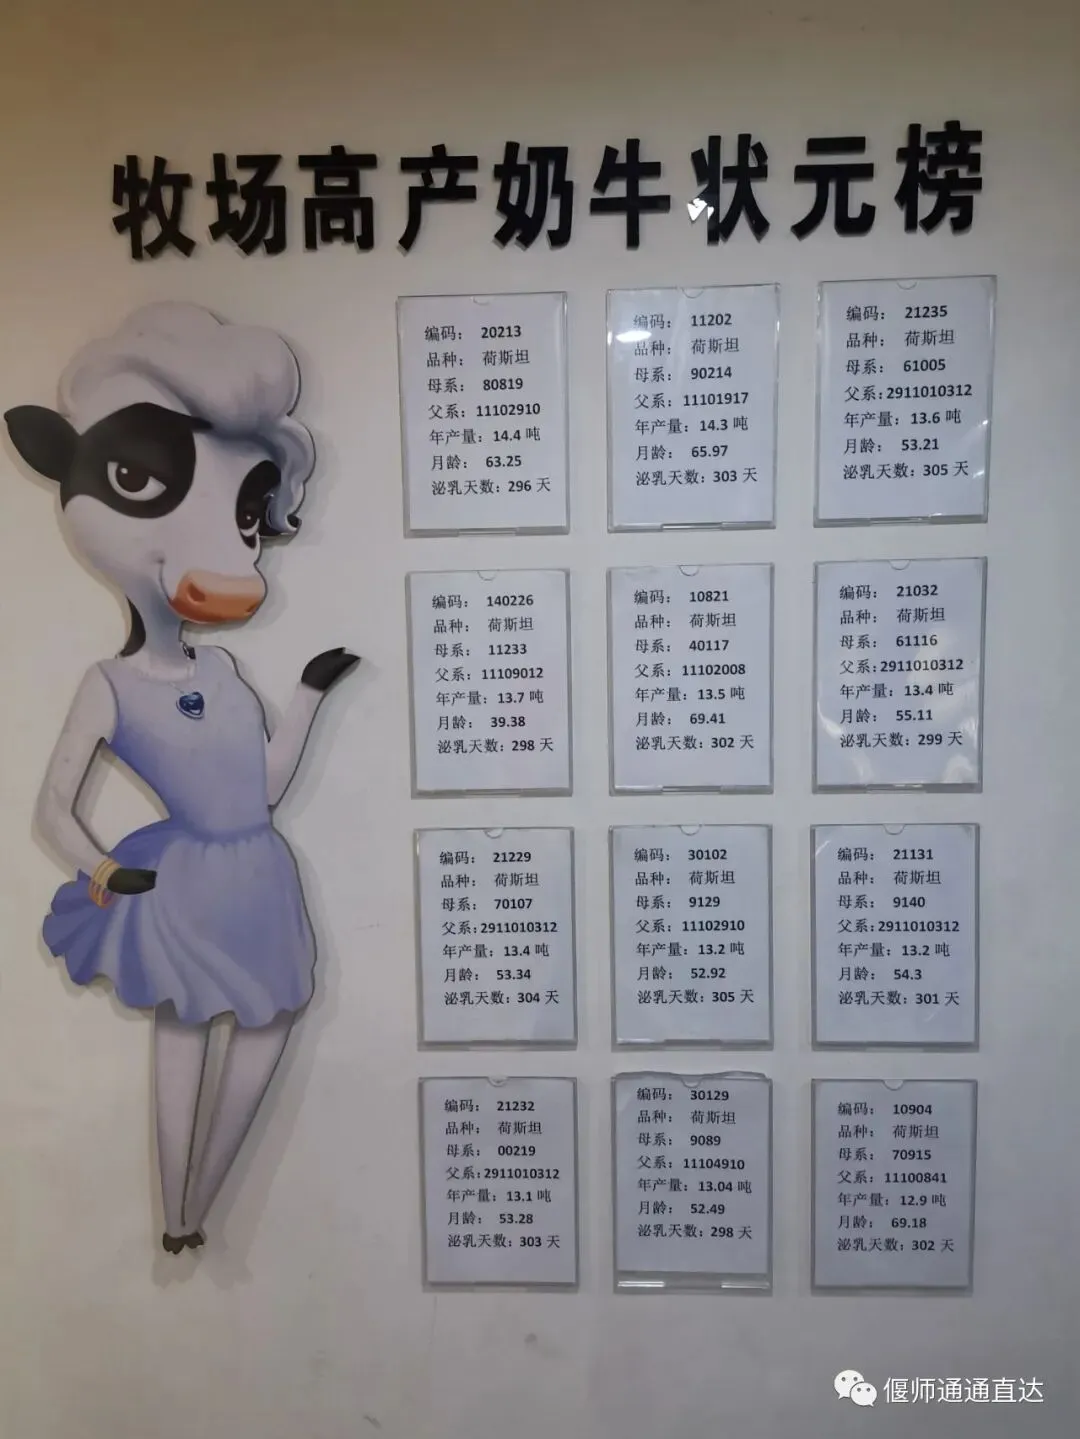 牧场高产奶牛状元榜
编码： 20213
品种： 荷斯坦
母系： 80819
父系：11102910
年产量：14.4 吨
月龄： 63.25
泌乳天数：296 天
编码： 11202
品种： 荷斯坦
母系： 90214
父系：11101917
年产量：14.3 吨
月龄： 65.97
泌乳天数：303 天
编码： 21235
品种： 荷斯坦
母系： 61005
父系：2911010312
年产量：13.6 吨
月龄： 53.21
泌乳天数：305 天
编码： 140226
品种： 荷斯坦
母系： 11233
父系：11109012
年产量：13.7 吨
月龄： 39.38
泌乳天数：298 天
编码： 10821
品种： 荷斯坦
母系： 40117
父系：11102008
年产量：13.5 吨
月龄： 69.41
泌乳天数：302 天
编码： 21032
品种： 荷斯坦
母系： 61116
父系：2911010312
年产量：13.4 吨
月龄： 55.11
泌乳天数：299 天
编码： 21229
品种： 荷斯坦
母系： 70107
父系：2911010312
年产量：13.4 吨
月龄： 53.34
泌乳天数：304 天
编码： 30102
品种： 荷斯坦
母系： 9129
父系：11102910
年产量：13.2 吨
月龄： 52.92
泌乳天数：305 天
编码： 21131
品种： 荷斯坦
母系： 9140
父系：2911010312
年产量：13.2 吨
月龄： 54.3
泌乳天数：301 天
编码： 21232
品种： 荷斯坦
母系： 00219
父系：2911010312
年产量：13.1 吨
月龄： 53.28
泌乳天数：303 天
编码： 30129
品种： 荷斯坦
母系： 9089
父系：11104910
年产量：13.04 吨
月龄： 52.49
泌乳天数：298 天
编码： 10904
品种： 荷斯坦
母系： 70915
父系：11100841
年产量：12.9 吨
月龄： 69.18
泌乳天数：302 天
偃师通通直达